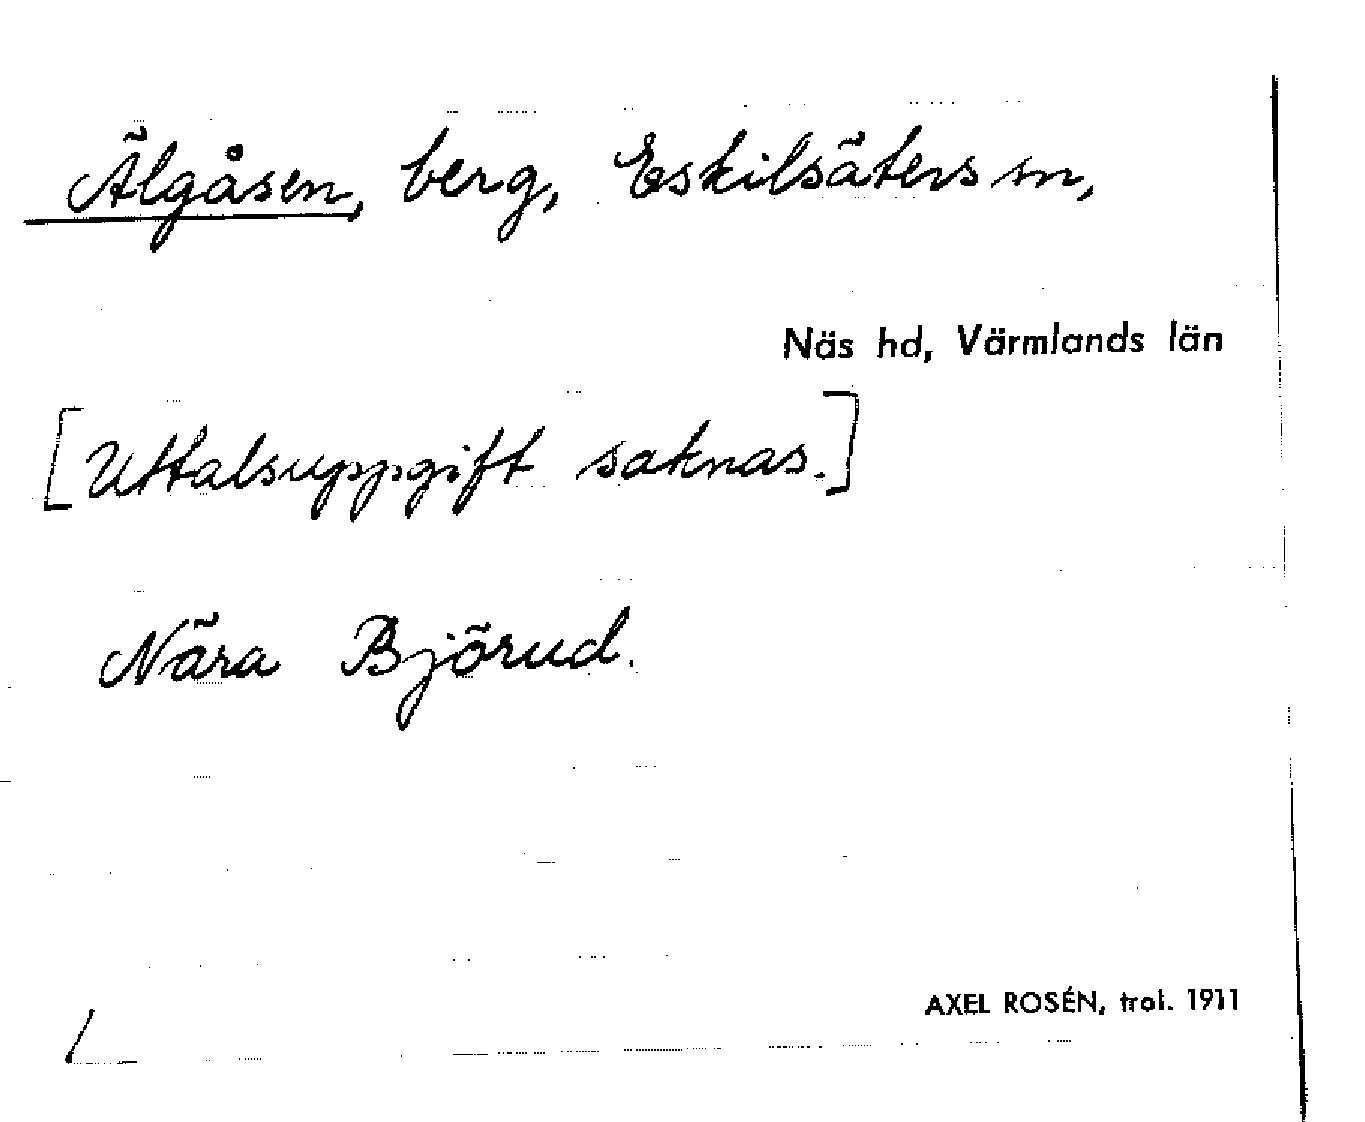 Älgåsen, berg, Eskilsäters sn,
Näs hd, Värmlands län
[Uttalsuppgift saknas.]
Nära Björud.
AXEL ROSÉN, trol. 1911